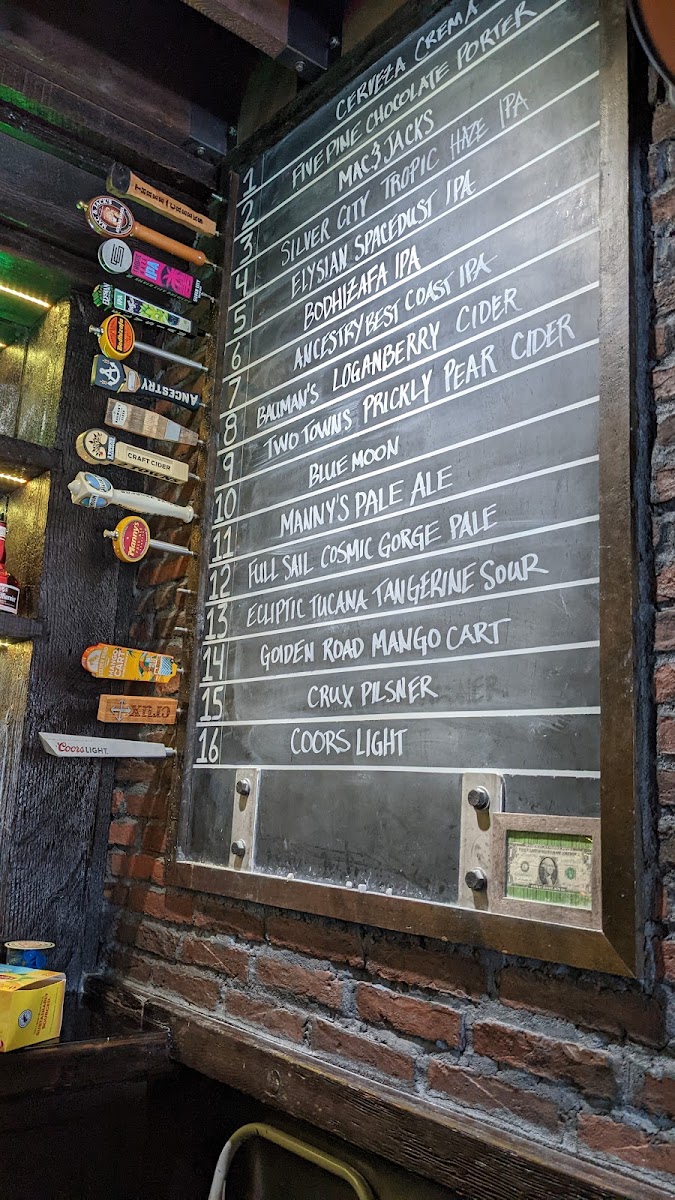 1 CERVEZA CREMA
2 FIVE PINE CHOCOLATE PORTER
3 MAC & JACKS
4 SILVER CITY TROPIC HAZE IPA
5 ELYSIAN SPACEDUST IPA
6 BODHIZAFA IPA
7 ANCESTRY BEST COAST IPA
8 BAUMAN'S LOGANBERRY CIDER
9 TWO TOWNS PRICKLY PEAR CIDER
10 BLUE MOON
11 MANNY'S PALE ALE
12 FULL SAIL COSMIC GORGE PALE
13 ECLIPTIC TUCANA TANGERINE SOUR
14 GOLDEN ROAD MANGO CART
15 CRUX PILSNER
16 COORS LIGHT
THREE CREEKS
MAC & JACK'S
IPA
IPA
Bodhizafa
ANCESTRY
CRAFT CIDER
Manny's
MANGO CART
CRUX
Coors LIGHT